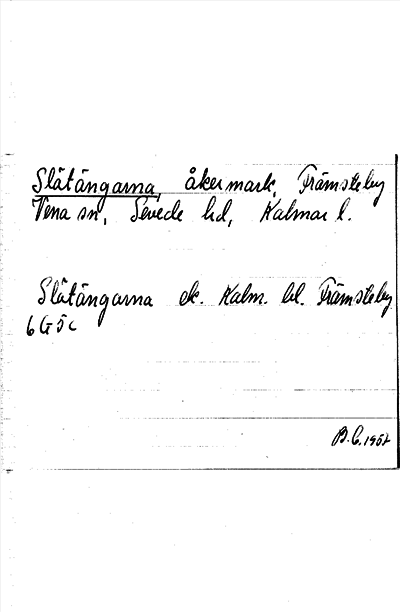 Slätängarna, åkermark, Främsteby
Vena sn, Sevede hd, Kalmar l.
Slätängarna ek. Kalm. bl. Främsteby
6G5c
B.C. 1957